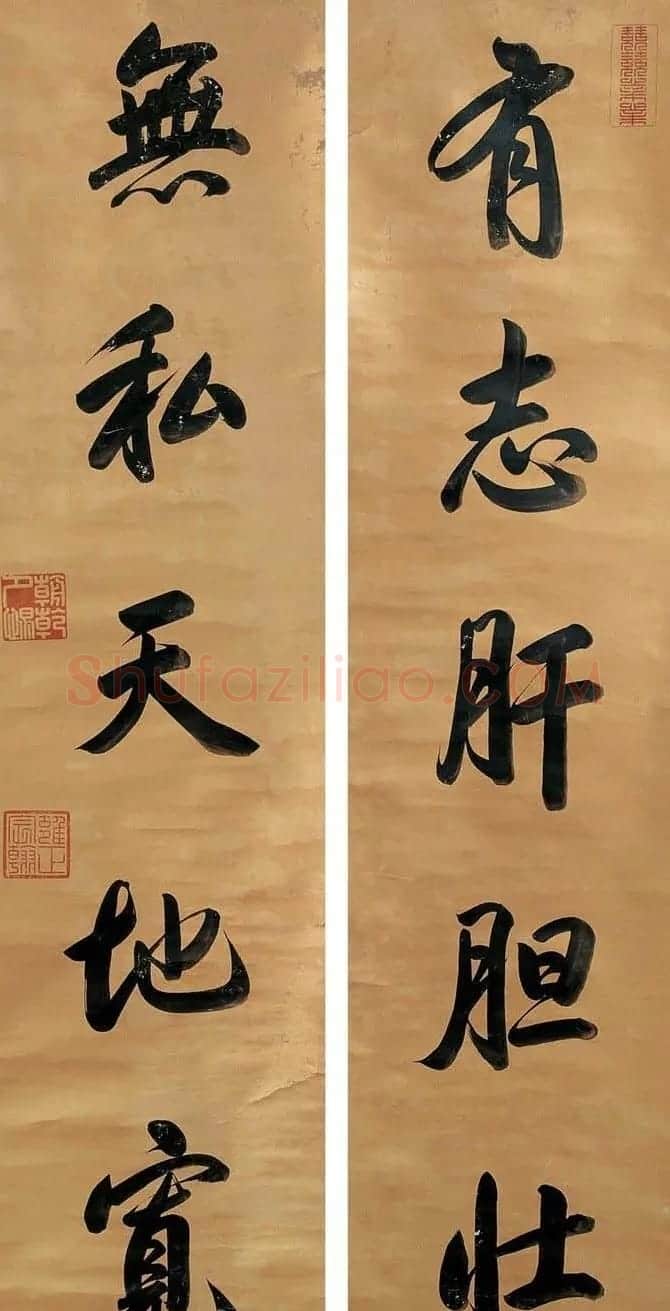 有志肝胆壮
無私天地寬
Shufaziliao.COM